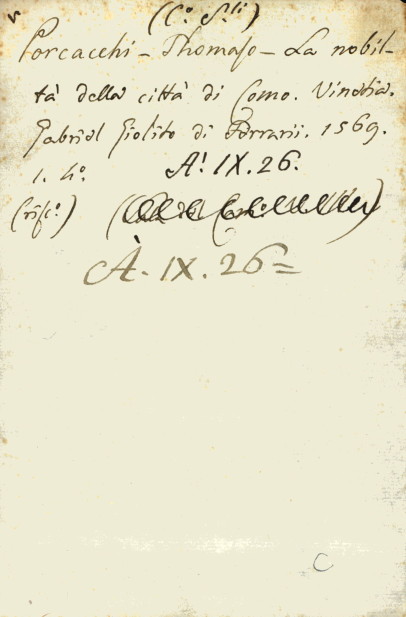 (C.º S.li)
Porcacchi - Thomaso - La nobil-
tà della città di Como. Vinetia.
Gabriel Giolito di Ferrarii. 1569.
1. 4.º A! IX. 26.
À. IX. 26=
C